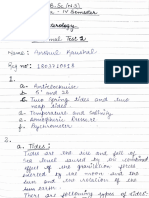 B.Sc (H.S)
- IV Semester
Internal Test 2
Name: Anshul Kaushal
1.
a. Anticlockwise
b. 5° and 28
c. Two Spring Sides and two
neap sides
d. Temperature and Salinity
e. Atmospheric Pressure
f. Psychrometer
2.
a. Tides:
Tides are the rise and fall of
sea level caused by the combined
effect of the gravitation forces
exerted by the moon and
the sun and the rotation of
the sun.
There are following types of tides: